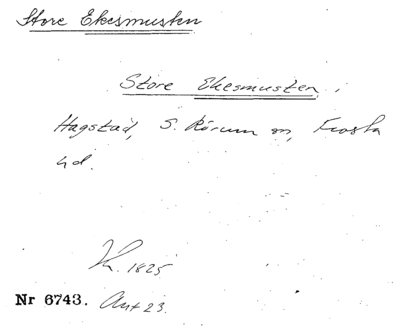 Store Ekesmusten
Store Ekesmusten,
Hagstad, S. Rörum sn, Frosta
hd.
K. 1825
Nr 6743. Ant 23.